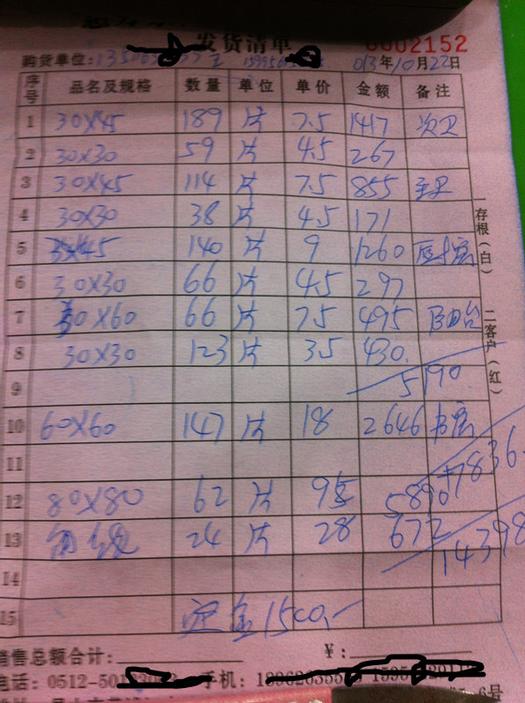 发货清单
0002152
购货单位: 013年10月22日
序号 品名及规格 数量 单位 单价 金额 备注
1 30×45 189 片 7.5 1417 次卫
2 30×30 59 片 4.5 267
3 30×45 114 片 7.5 855 主卫
4 30×30 38 片 4.5 171
5 45 140 片 9 1260 厨房
6 30×30 66 片 4.5 297
7 30×60 66 片 7.5 495 阳台
8 30×30 123 片 3.5 430.
9 5190
10 60×60 147 片 18 2646 书房
11 7836
12 80×80 62 片 95 5890
13 24 片 28 672
14 14398
15 定金1500.-
存根(白) 二客户(红)
销售总额合计: ¥:
电话: 0512-50 手机:
6号